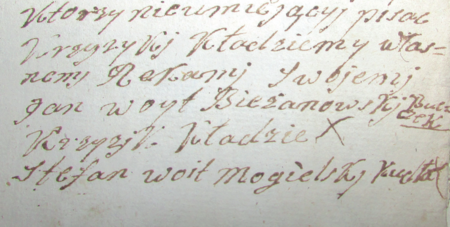 Ktorzy nieumiejącyj pisac
Krzyzykj Kładziemy włas=
nemj Rękamj Swojemj
Jan woyt Bieżanowskj
Krzyżyk Kładzie X
Stefan woit Mogielskj